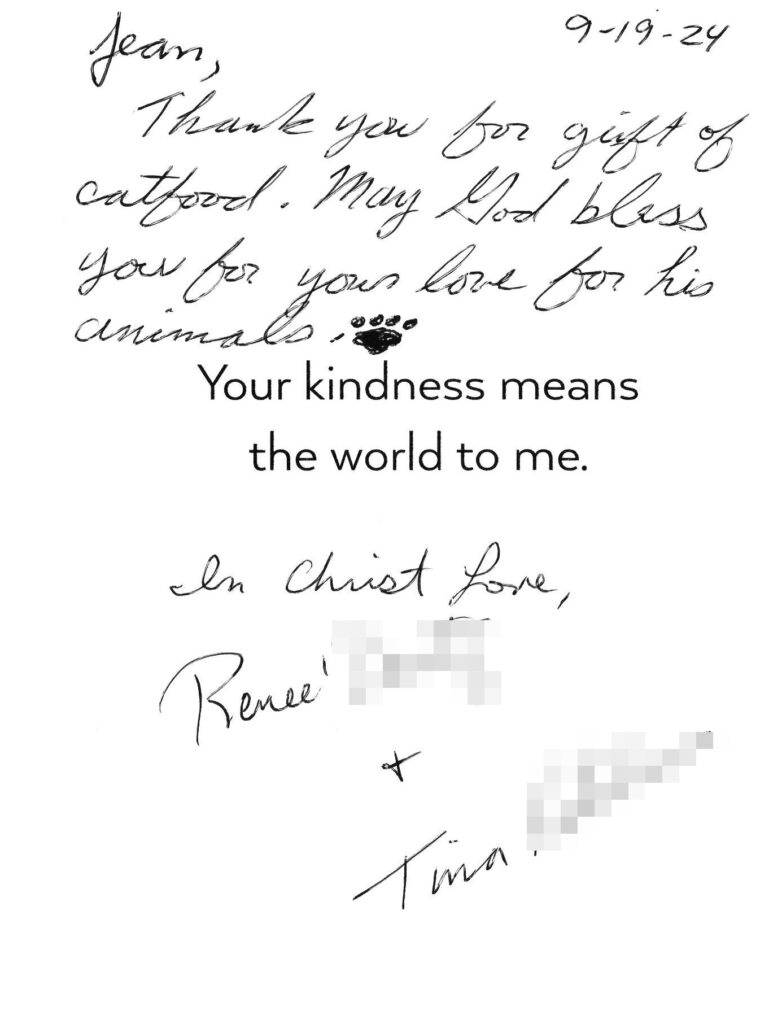 9-19-24
Jean,
Thank you for gift of
catfood. May God bless
you for your love for his
animals.
Your kindness means
the world to me.
In Christ Love,
Renee'
+
Tina